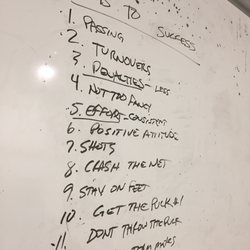 TO SUCCESS
1. PASSING
2. TURNOVERS
3. PENALTIES - LESS
4. NOT TOO FANCY
5. EFFORT - CONSISTENT
6. POSITIVE ATTITUDE
7. SHOTS
8. CRASH THE NET
9. STAY ON FEET
10. GET THE PUCK
11. DONT THROW THE PUCK